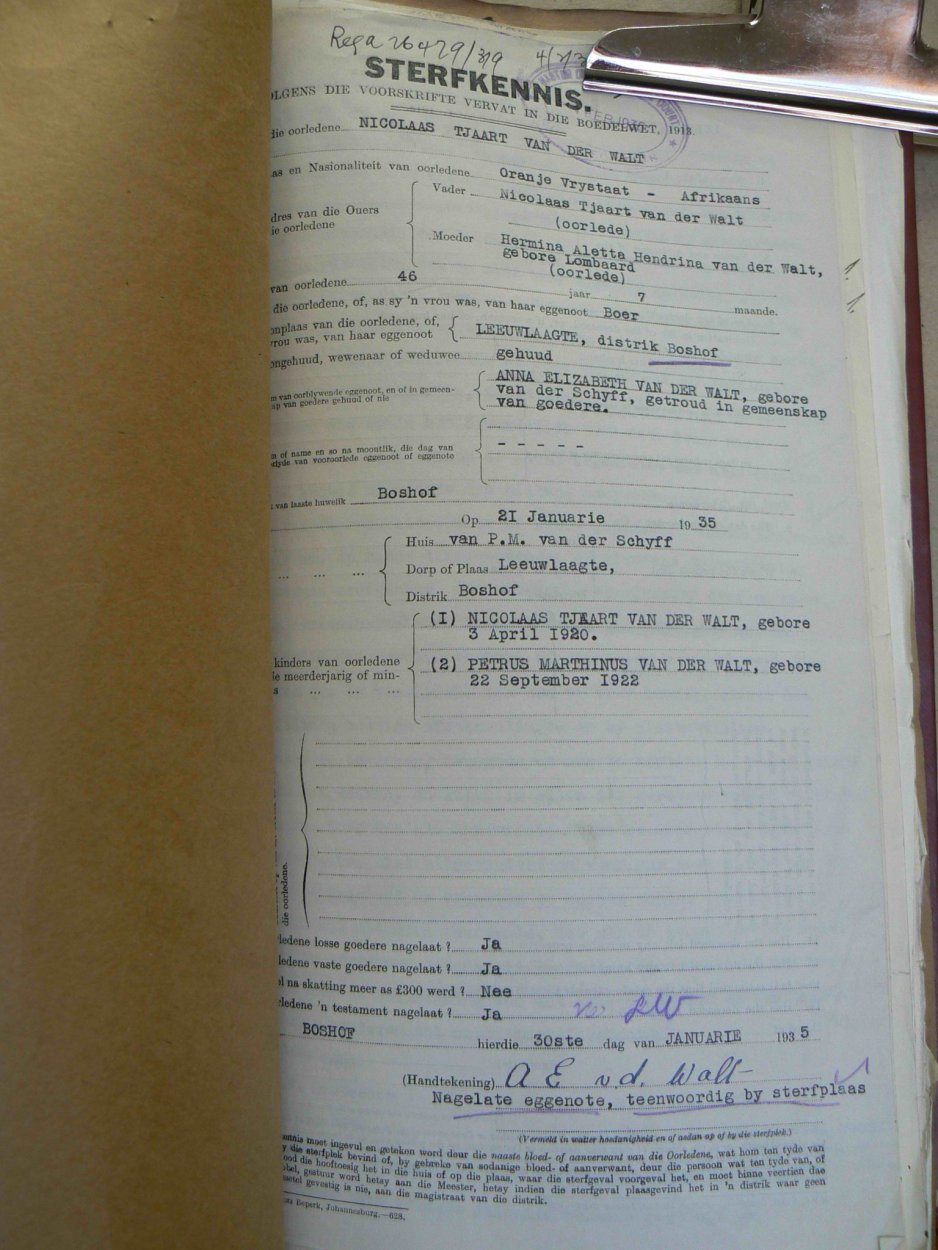 Rega 26429/319
STERFKENNIS.
OLGENS DIE VOORSKRIFTE VERVAT IN DIE BOEDELWET, 1913.
die oorledene NICOLAAS TJAART VAN DER WALT
as en Nasionaliteit van oorledene Oranje Vrystaat - Afrikaans
dres van die Ouers
ie oorledene
Vader Nicolaas Tjaart van der Walt
(oorlede)
Moeder Hermina Aletta Hendrina van der Walt,
gebore Lombaard
(oorlede)
van oorledene 46 jaar 7 maande.
die oorledene, of, as sy 'n vrou was, van haar eggenoot Boer
onplaas van die oorledene, of,
rou was, van haar eggenoot
LEEUWLAAGTE, distrik Boshof
ongehuud, wewenaar of weduwee gehuud
m van oorblywende eggenoot, en of in gemeen-
ap van goedere gehuud of nie
ANNA ELIZABETH VAN DER WALT, gebore
van der Schyff, getroud in gemeenskap
van goedere.
m of name en so na moontlik, die dag van
rlyde van vooroorlede eggenoot of eggenote
- - - - -
van laaste huwelik Boshof
Op 2I Januarie 19 35
Huis van P.M. van der Schyff
Dorp of Plaas Leeuwlaagte,
Distrik Boshof
kinders van oorledene
le meerderjarig of min-
s
(I) NICOLAAS TJAART VAN DER WALT, gebore
3 April I920.
(2) PETRUS MARTHINUS VAN DER WALT, gebore
22 September I922
die oorledene.
ledene losse goedere nagelaat ? Ja
ledene vaste goedere nagelaat ? Ja
l na skatting meer as £300 werd ? Nee
rledene 'n testament nagelaat ? Ja
BOSHOF hierdie 30ste dag van JANUARIE 193 5
(Handtekening) A E v.d. Walt
Nagelate eggenote, teenwoordig by sterfplaas
(Vermeld in watter hoedanigheid en of aedan op of by die sterfplek.)
nnis moet ingevul en geteken word deur die naaste bloed- of aanverwant van die Oorledene, wat hom ten tyde van
y die sterfplek bevind of, by gebreke van sodanige bloed- of aanverwant, deur die persoon wat ten tyde van, of
ood die hooftoesig het in die huis of op die plaas, waar die sterfgeval voorgeval het, en moet binne veertien dae
gestuur word hetsy aan die Meester, hetsy indien die sterfgeval plaasgevind het in 'n distrik waar geen
setel gevestig is nie, aan die magistraat van die distrik.
Beperk, Johannesburg.—628.